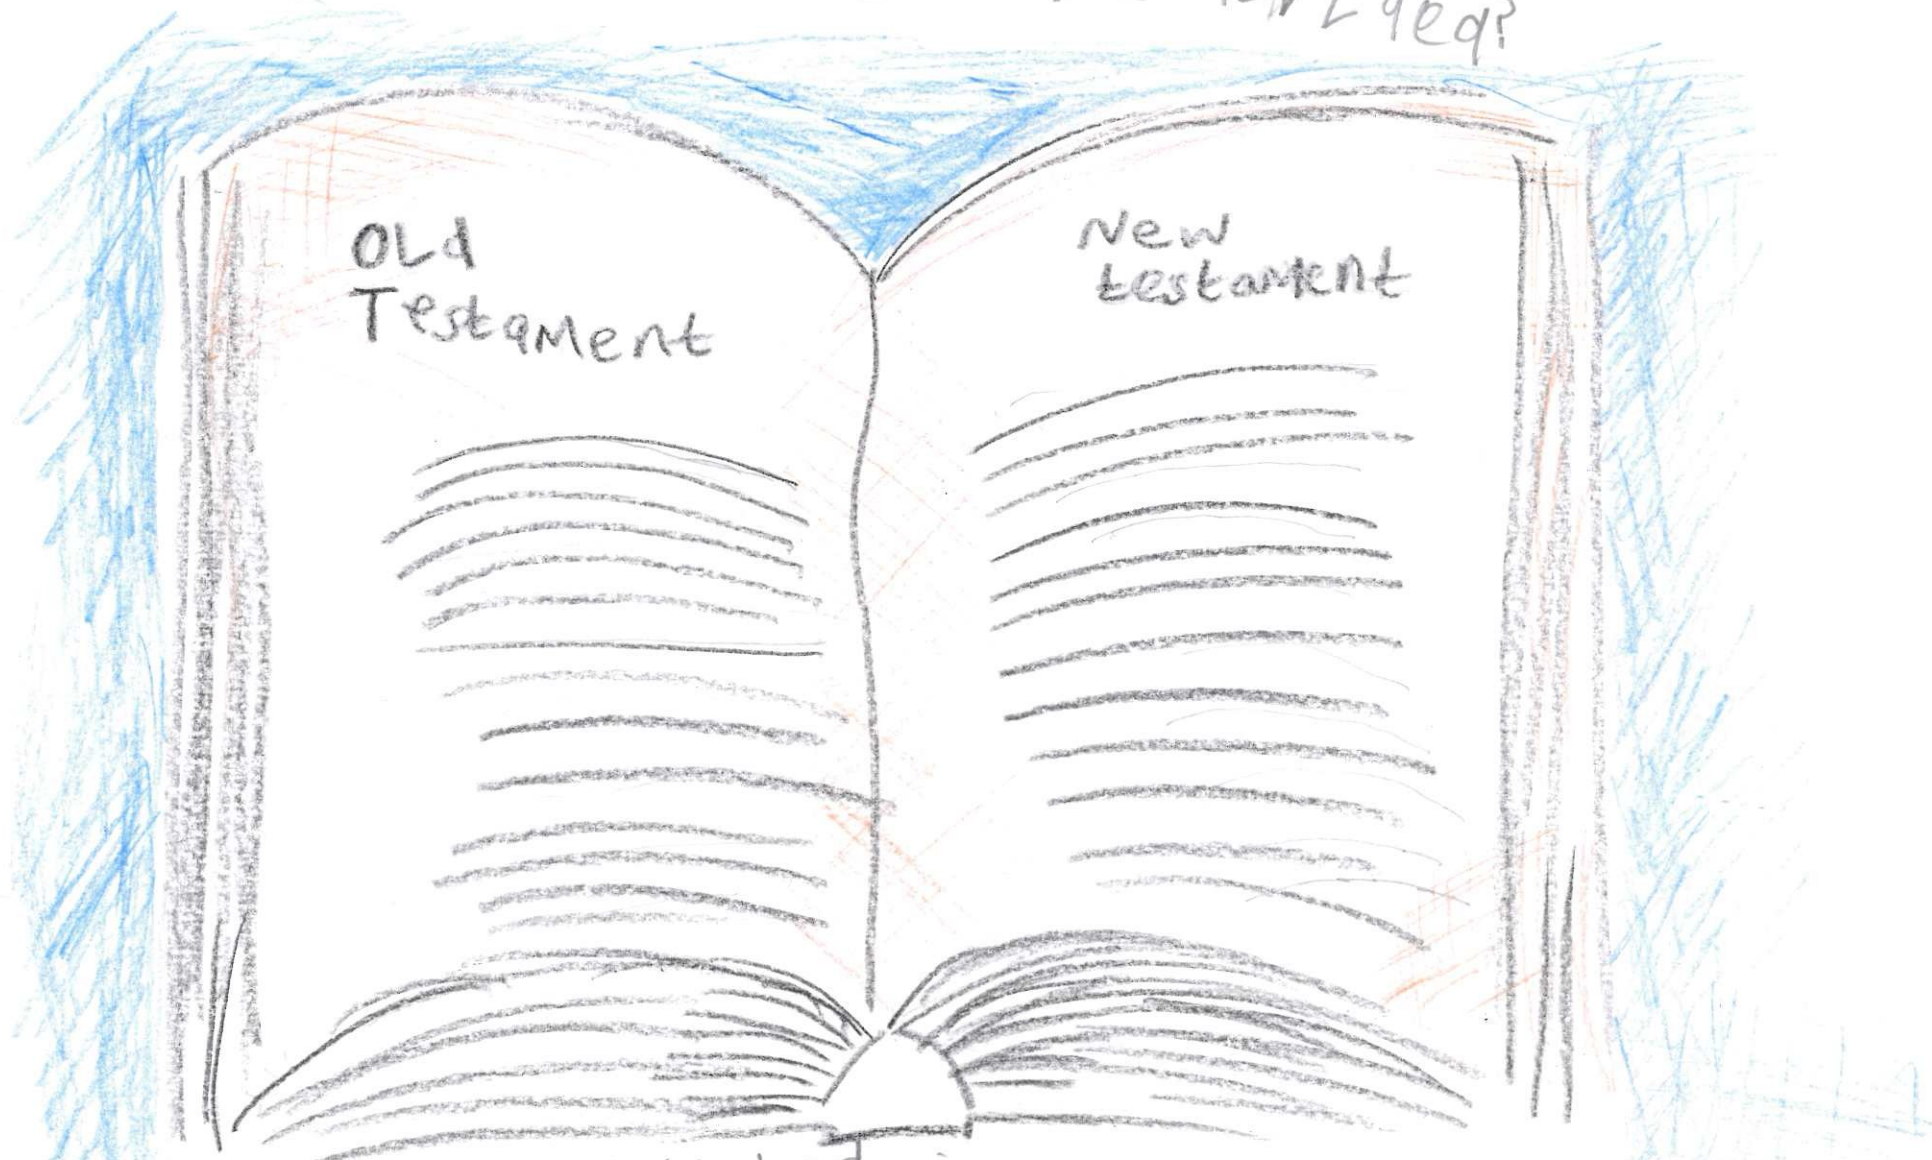 OLd
Testament
New
testament